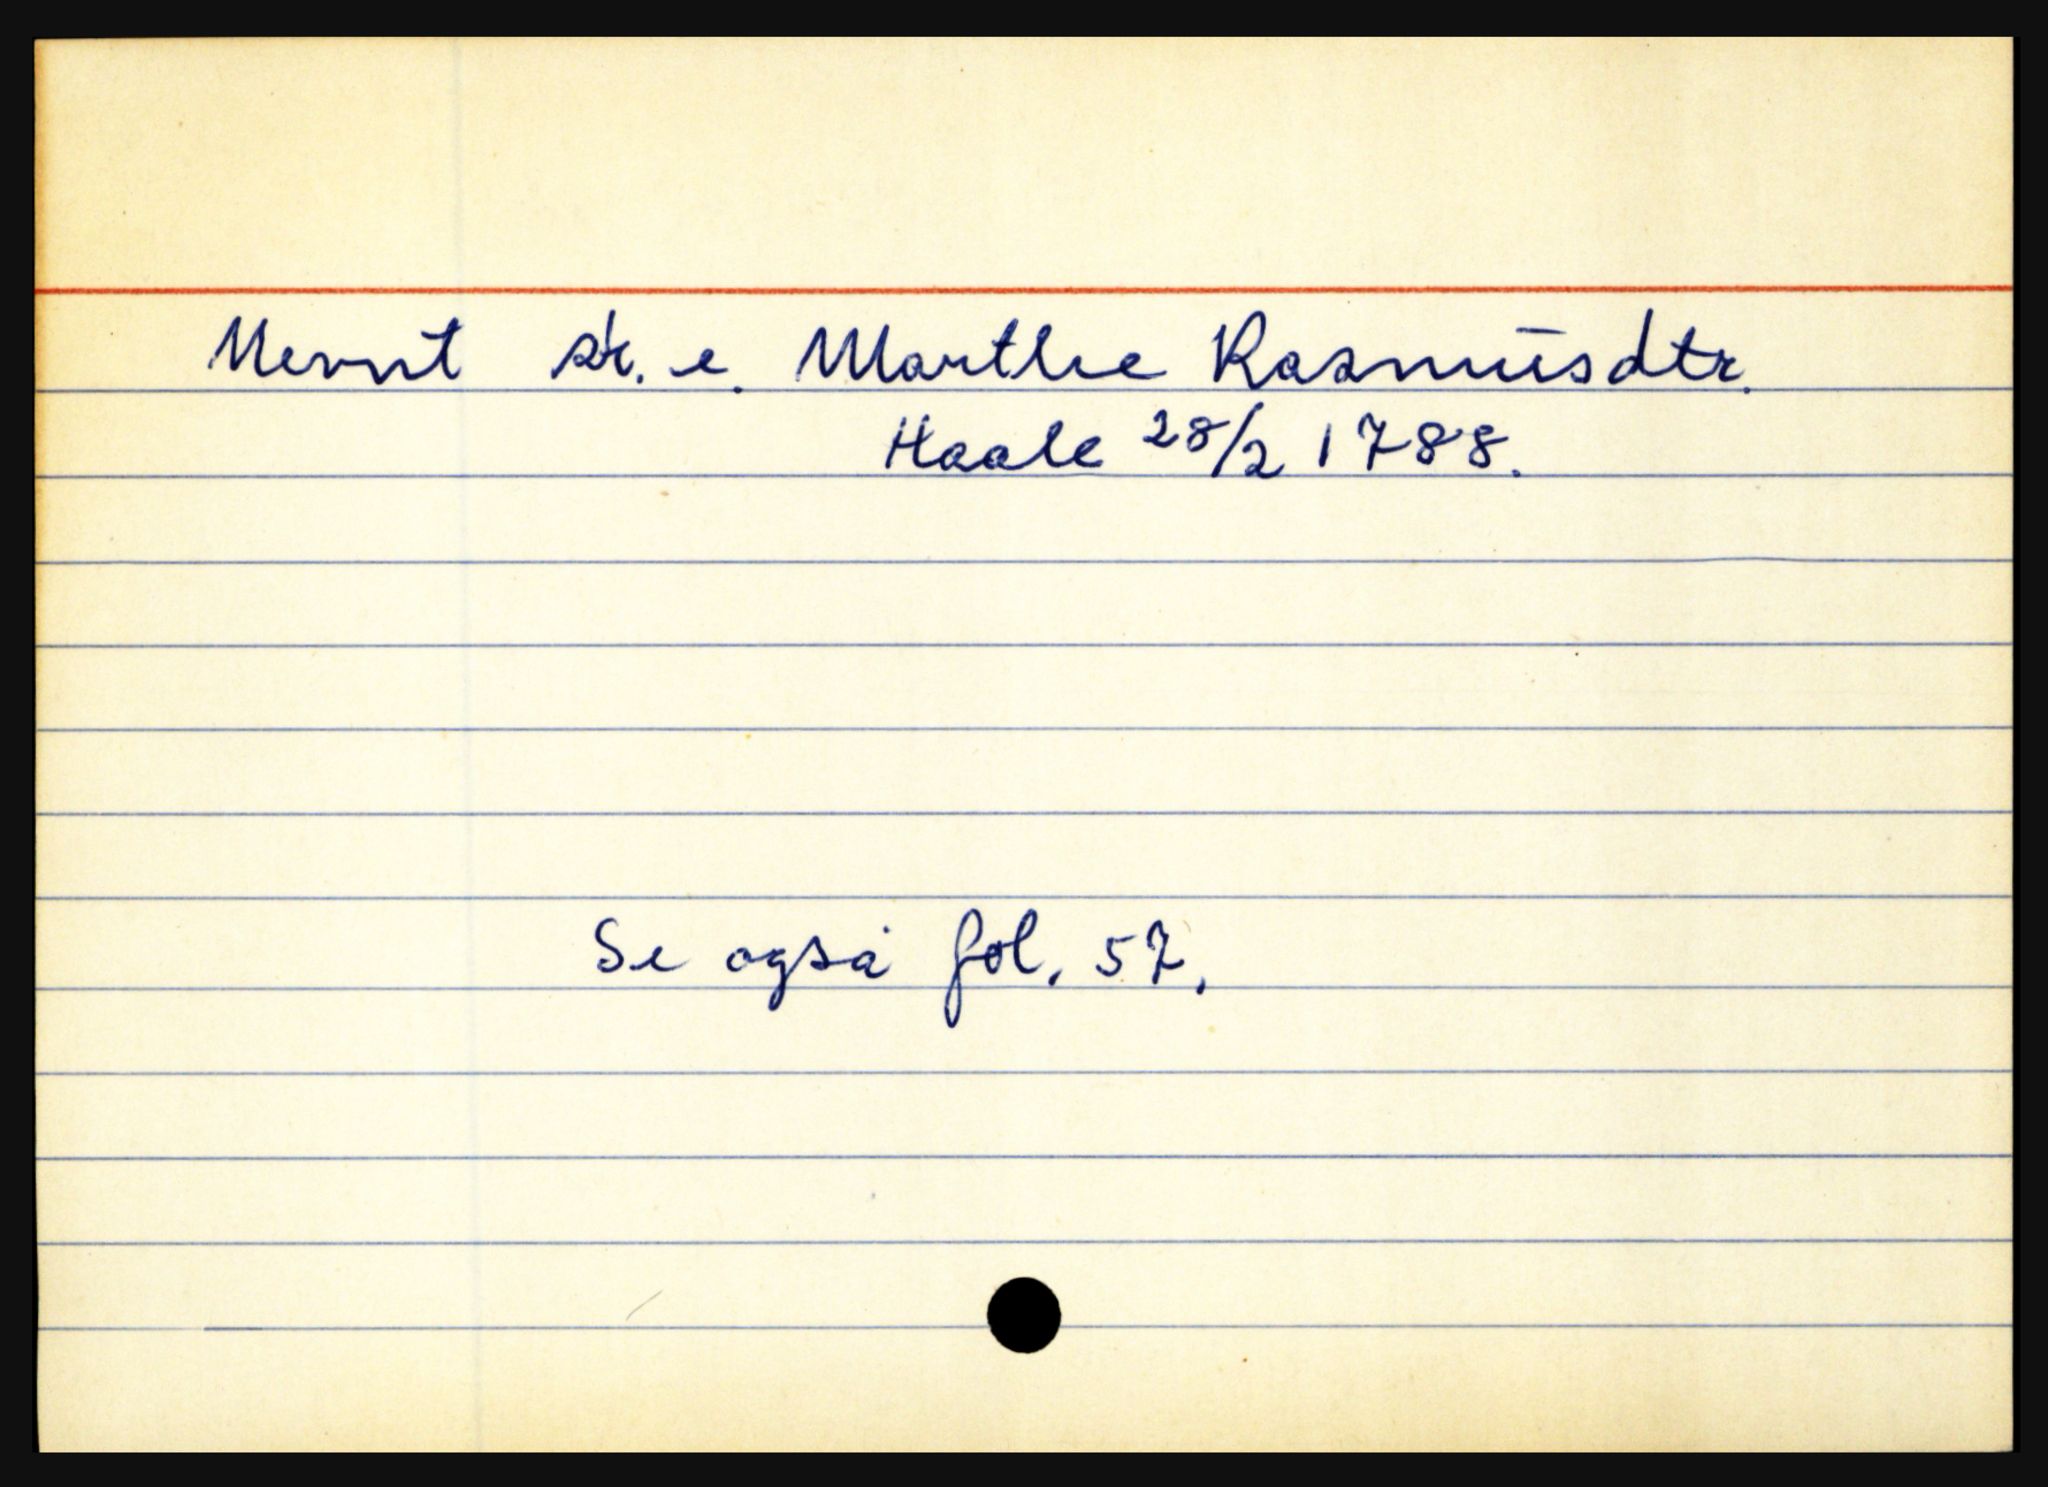 Nevnt sk. e. Marthe Rasmusdtr.
Haale 28/2 1788.
Se også fol. 57.